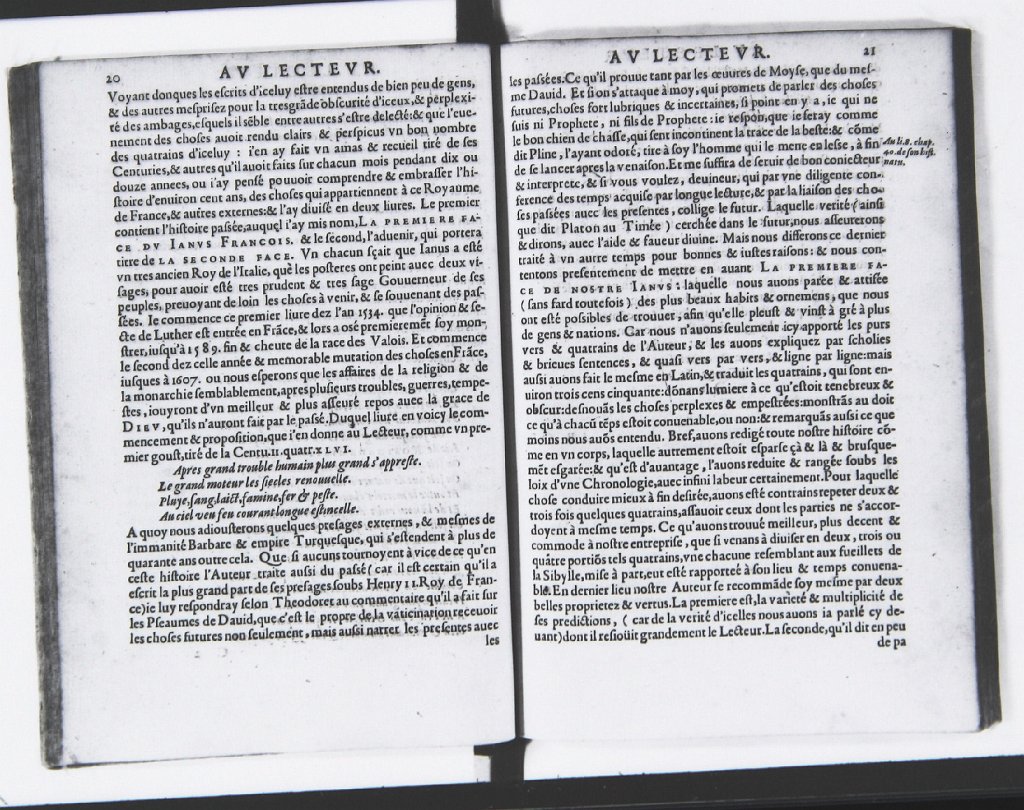 20
AV LECTEVR.
Voyant donques les escrits d'iceluy estre entendus de bien peu de gens,
& des autres mesprisez pour la tresgrãde obscurité d'iceux, & perplexi-
té des ambages, esquels il sẽble entre autres s'estre delecté: & que l'eue-
nement des choses auoit rendu clairs & perspicus vn bon nombre
des quatrains d'iceluy : i'en ay fait vn amas & recueil tiré de ses
Centuries, & autres qu'il auoit faits sur chacun mois pendant dix ou
douze annees, ou i'ay pensé pouuoir comprendre & embrasser l'hi-
stoire d'enuiron cent ans, des choses qui appartiennent à ce Royaume
de France, & autres externes: & l'ay diuisé en deux liures. Le premier
contient l'histoire passée, auquel i'ay mis nom, LA PREMIERE FA-
CE DV IANVS FRANCOIS. & le second, l'aduenir, qui portera
titre de LA SECONDE FACE. Vn chacun sçait que Ianus a esté
vn tres ancien Roy de l'Italie, què les posteres ont peint auec deux vi-
sages, pour auoir esté tres prudent & tres sage Gouuerneur de ses
peuples, preuoyant de loin les choses à venir, & se souuenant des pas-
sées. Ie commence ce premier liure dez l'an 1534. que l'opinion & se-
cte de Luther est entrée en Frãce, & lors a osé premieremẽt soy mon-
strer, iusqu'à 1589. fin & cheute de la race des Valois. Et commence
le second dez celle année & memorable mutation des choses en Frãce,
iusques à 1607. ou nous esperons que les affaires de la religion & de
la monarchie semblablement, apres plusieurs troubles, guerres, tempe-
stes, iouyront d'vn meilleur & plus asseuré repos auec la grace de
DIEV, qu'ils n'auront fait par le passé. Duquel liure en voicy le com-
mencement & proposition, que i'en donne au Lecteur, comme vn pre-
mier goust, tiré de la Centu. 11. quatr. XLVI.
Apres grand trouble humain plus grand s'appreste.
Le grand moteur les siecles renouuelle.
Pluye, sang, laict, famine, fer & peste.
Au ciel veu feu courant longue estincelle.
A quoy nous adiousterons quelques presages externes, & mesmes de
l'immanité Barbare & empire Turquesque, qui s'estendent à plus de
quarante ans outre cela. Que si aucuns tournoyent à vice de ce qu'en
ceste histoire l'Auteur traite aussi du passé ( car il est certain qu'il a
escrit la plus grand part de ses presages soubs Henry 11. Roy de Fran-
ce) ie luy respondray selon Theodoret au commentaire qu'il a fait sur
les Pseaumes de Dauid, que c'est le propre de la vaticination receuoir
les choses futures non seulement, mais aussi narrer les presentes auec
les
AV LECTEVR.
21
les passées. Ce qu'il prouue tant par les œuures de Moyse, que du mes-
me Dauid. Et si on s'attaque à moy, qui promets de parler des choses
futures, choses fort lubriques & incertaines, si point en y a, ie qui ne
suis ni Prophete, ni fils de Prophete: ie respon, que ie feray comme
le bon chien de chasse, qui sent incontinent la trace de la beste: & cõme
dit Pline, l'ayant odoré, tire à soy l'homme qui le mene en lesse, à fin
de se lancer apres la venaison. Et me suffira de seruir de bon coniecteur
& interprete, & si vous voulez, deuineur, qui par vne diligente con-
ference des temps acquise par longue lecture, & par la liaison des cho-
ses passées auec les presentes, collige le futur. Laquelle verité ( ainsi
que dit Platon au Timée ) cerchée dans le futur, nous asseurerons
& dirons, auec l'aide & faueur diuine. Mais nous differons ce dernier
traité à vn autre temps pour bonnes & iustes raisons: & nous con-
tentons presentement de mettre en auant LA PREMIERE FA-
CE DE NOSTRE IANVS: laquelle nous auons parée & attifée
( sans fard toutefois ) des plus beaux habits & ornemens, que nous
ont esté possibles de trouuer, afin qu'elle pleust & vinst à gré à plus
de gens & nations. Car nous n'auons seulement icy apporté les purs
vers & quatrains de l'Auteur, & les auons expliquez par scholies
& brieues sentences, & quasi vers par vers, & ligne par ligne: mais
aussi auons fait le mesme en Latin, & traduit les quatrains, qui sont en-
uiron trois cens cinquante: dõnans lumiere à ce qu'estoit tenebreux &
obscur: desnouãs les choses perplexes & empestrées: monstrãs au doit
ce qu'à chacũ tẽps estoit conuenable, ou non: & remarquãs aussi ce que
moins nous auõs entendu. Bref, auons redigé toute nostre histoire cõ-
me en vn corps, laquelle autrement estoit esparse çà & là & brusque-
mẽt esgarée: & qu'est d'auantage, l'auons reduite & rangée soubs les
loix d'vne Chronologie, auec infini labeur certainement. Pour laquelle
chose conduire mieux à fin desirée, auons esté contrains repeter deux &
trois fois quelques quatrains, assauoir ceux dont les parties ne s'accor-
doyent à mesme temps. Ce qu'auons trouué meilleur, plus decent &
commode à nostre entreprise, que si venans à diuiser en deux, trois ou
quãtre portiõs tels quatrains, vne chacune resemblant aux fueillets de
la Sibylle, mise à part, eut esté rapportée à son lieu & temps conuena-
ble. En dernier lieu nostre Auteur se recommãde soy mesme par deux
belles proprietez & vertus. La premiere est, la varieté & multiplicité de
ses predictions, ( car de la verité d'icelles nous auons ia parlé cy de-
uant) dont il resioüit grandement le Lecteur. La seconde, qu'il dit en peu
de pa
Au li. 8. chap.
40. de son hist.
natu.